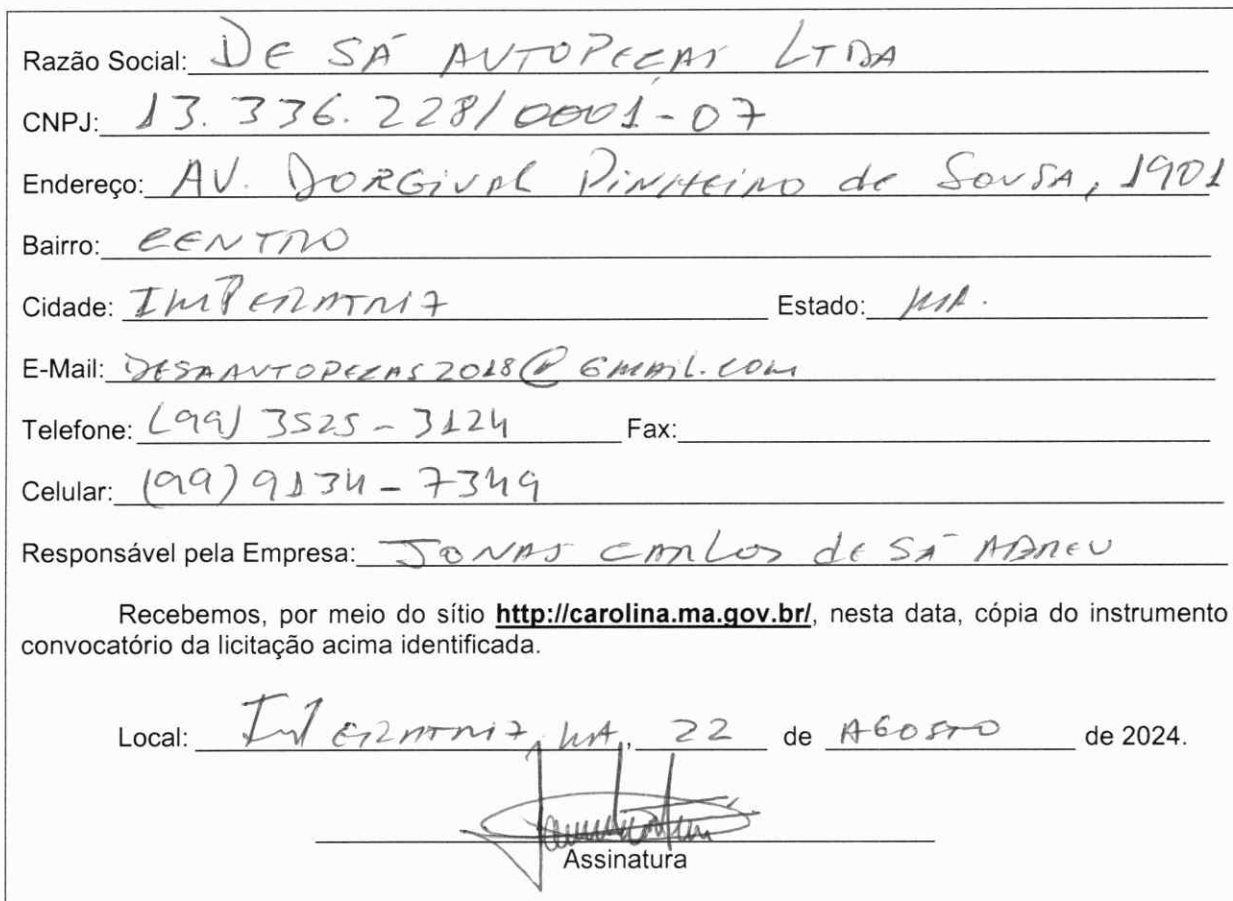 Razão Social: DE SÁ AUTOPEÇAS LTDA
CNPJ: 13.336.228/0001-07
Endereço: AV. DORGIVAL PINHEIRO de SOUSA, 1901
Bairro: CENTRO
Cidade: IMPERATRIZ Estado: MA.
E-Mail: DESAAUTOPECAS2018@GMAIL.COM
Telefone: (99) 3525-3124 Fax:
Celular: (99) 9134-7349
Responsável pela Empresa: JONAS CARLOS de SÁ ABREU
Recebemos, por meio do sítio http://carolina.ma.gov.br/, nesta data, cópia do instrumento
convocatório da licitação acima identificada.
Local: IMPERATRIZ, MA, 22 de AGOSTO de 2024.
Assinatura